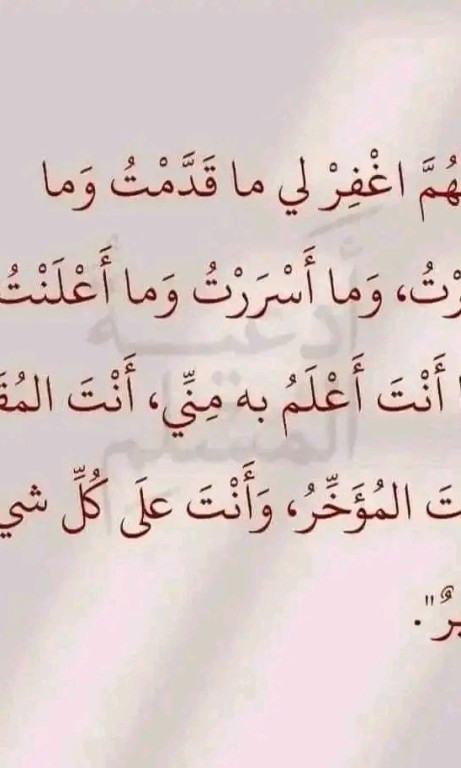 هُمَّ اغْفِرْ لي ما قَدَّمْتُ وَما
رْتُ، وَما أَسْرَرْتُ وَما أَعْلَنْتُ
ا أَنْتَ أَعْلَمُ به مِنِّي، أَنْتَ المُقَ
تَ المُؤَخِّرُ، وَأَنْتَ علَى كُلِّ شي
يرٌ".
أدعية
المسلم